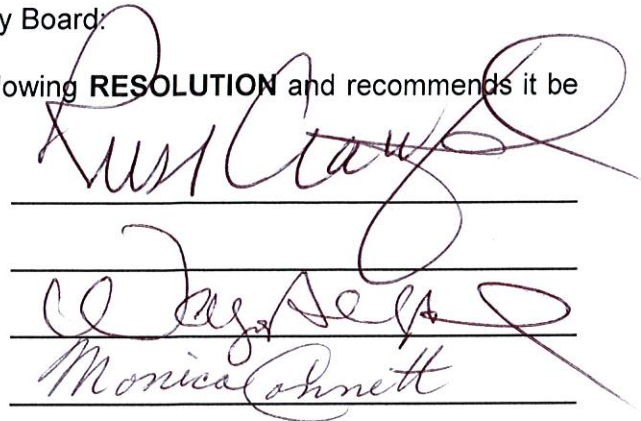 y Board:
lowing RESOLUTION and recommends it be
Russ Crawford
Monica Connett